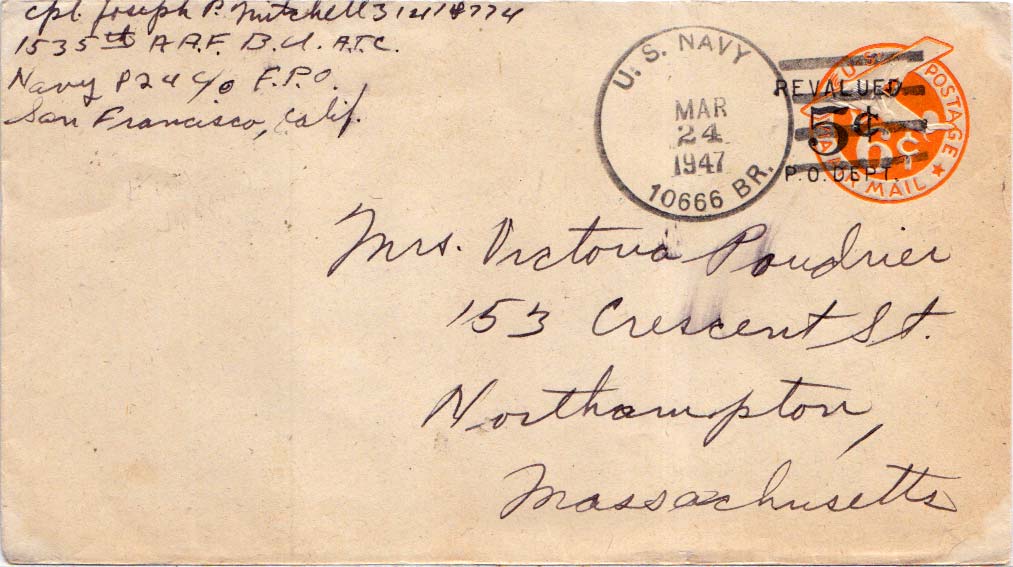 Cpl. Joseph P. Mitchell 31418774
1535th A.A.F. B.U. A.T.C.
Navy 824 c/o F.P.O.
San Francisco, Calif.
U.S. NAVY
MAR
24
1947
10666 BR.
REVALUED
5¢
P.O. DEPT.
U.S. POSTAGE
6¢
AIR MAIL
Mrs. Victoria Poudrier
153 Crescent St.
Northampton,
Massachusetts